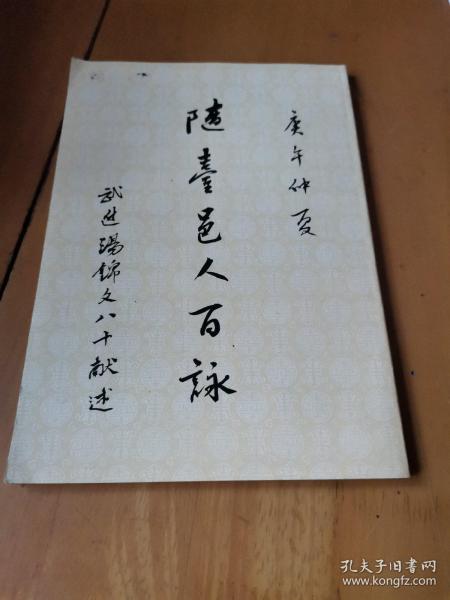 庚午仲夏
隨臺邑人百詠
武進湯錦文八十献述
孔夫子旧书网
www.kongfz.com